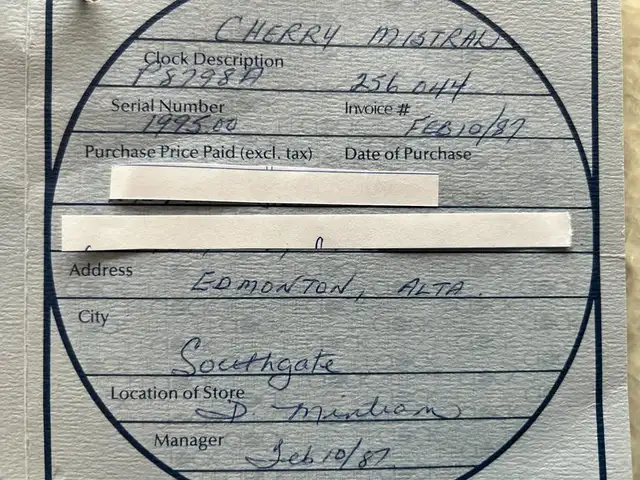 CHERRY MISTRAL
Clock Description
P8798A 256 044
Serial Number Invoice #
1995.00 FEB 10/87
Purchase Price Paid (excl. tax) Date of Purchase
Address
EDMONTON, ALTA.
City
Southgate
Location of Store
D.
Manager
Feb 10/87